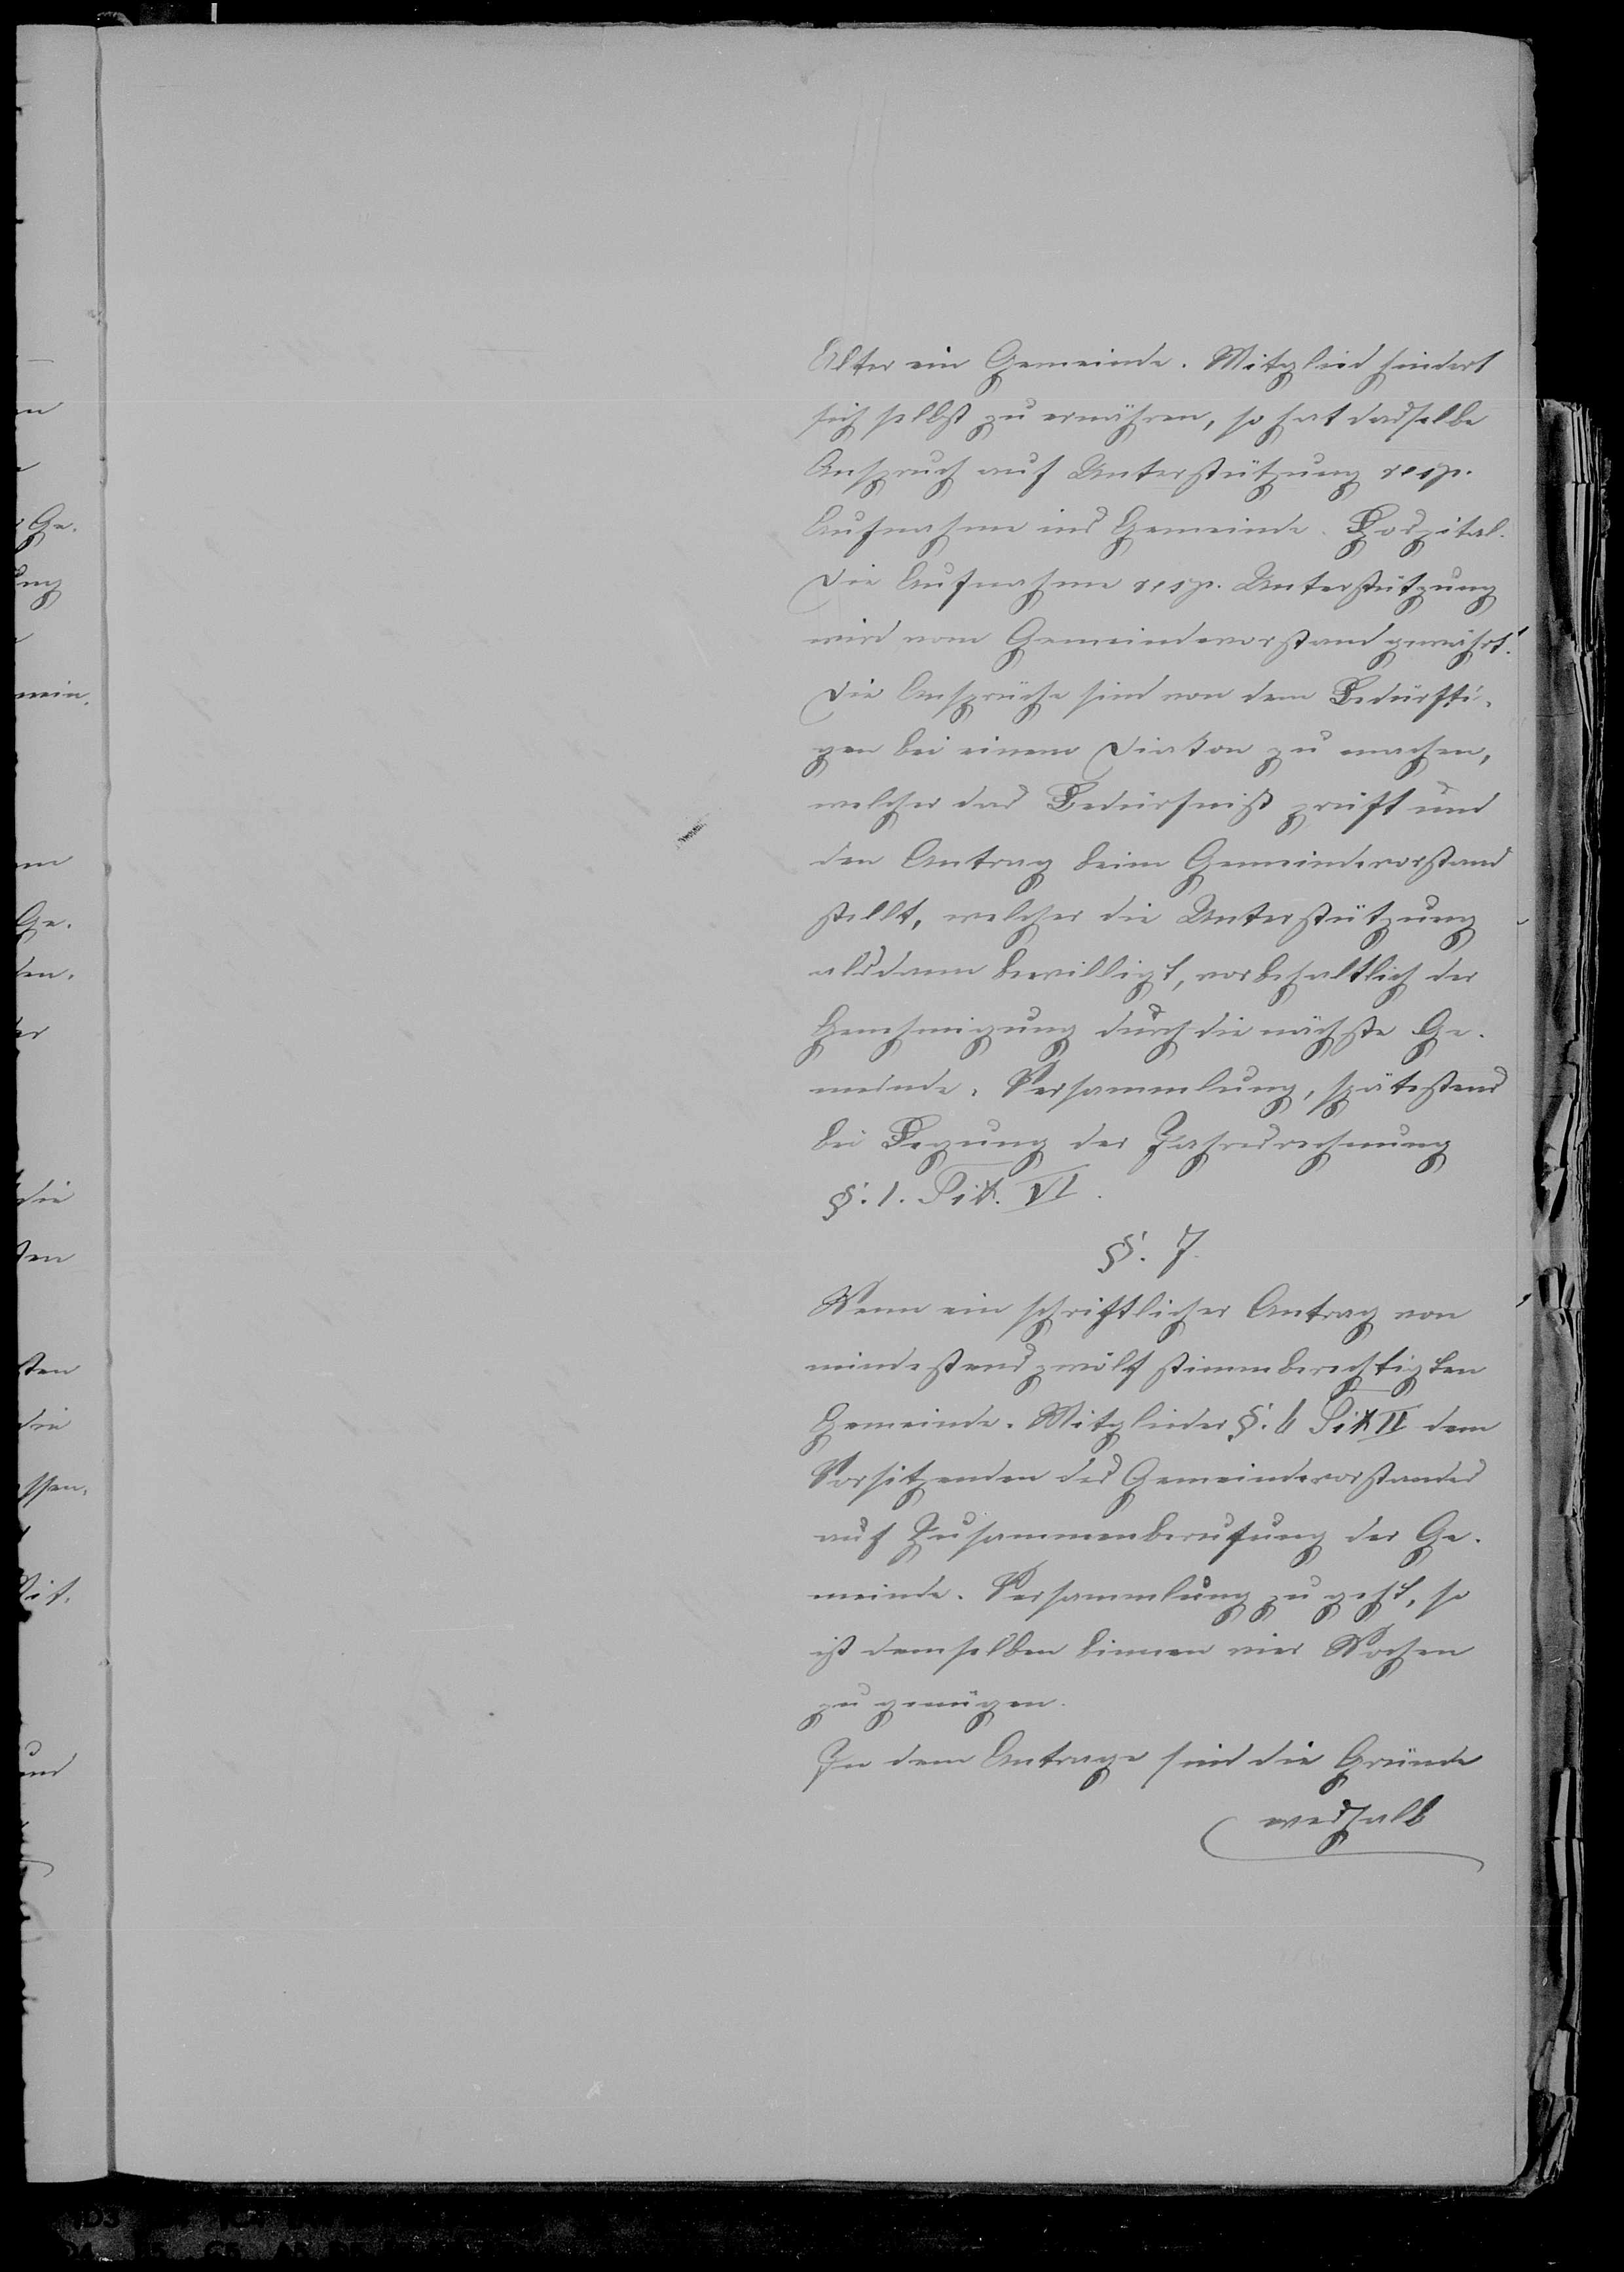 Alter ein Gemeinde-Mitglied hindert
sich selbst zu ernähren, so hat dasselbe
Anspruch auf Unterstützung resp.
Aufnahme ins Gemeinde-Hospital.
Die Aufnahme resp. Unterstützung
wird vom Gemeindevorstand gewährt.
Die Ansprüche sind von dem Bedürfti-
gen bei einem Diakon zu machen,
welcher das Bedürfniß prüft und
den Antrag beim Gemeindevorstand
stellt, welcher die Unterstützung
alsdann bewilligt, vorbehaltlich der
Genehmigung durch die nächste Ge-
meinde-Versammlung, spätestens
bei Legung der Jahresrechnung
§. 1. Tit. VI.
§. 7.
Wenn ein schriftlicher Antrag von
mindestens zwölf stimmberechtigten
Gemeinde-Mitglieder §. 4 Tit II dem
Vorsitzenden des Gemeindevorstandes
auf Zusammenberufung der Ge-
meinde-Versammlung zu geht, so
ist demselben binnen vier Wochen
zu genügen.
In dem Antrage sind die Gründe
weshalb